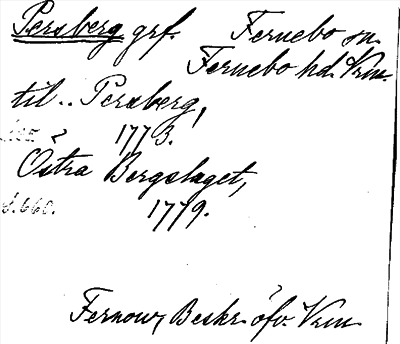 Persberg grf. Fernebo sn.
Fernebo hd. Vrm.
til.. Persberg,
1773.
Östra Bergslaget,
s. 660. 1779.
Fernow, Beskr. öfv. Vrm.